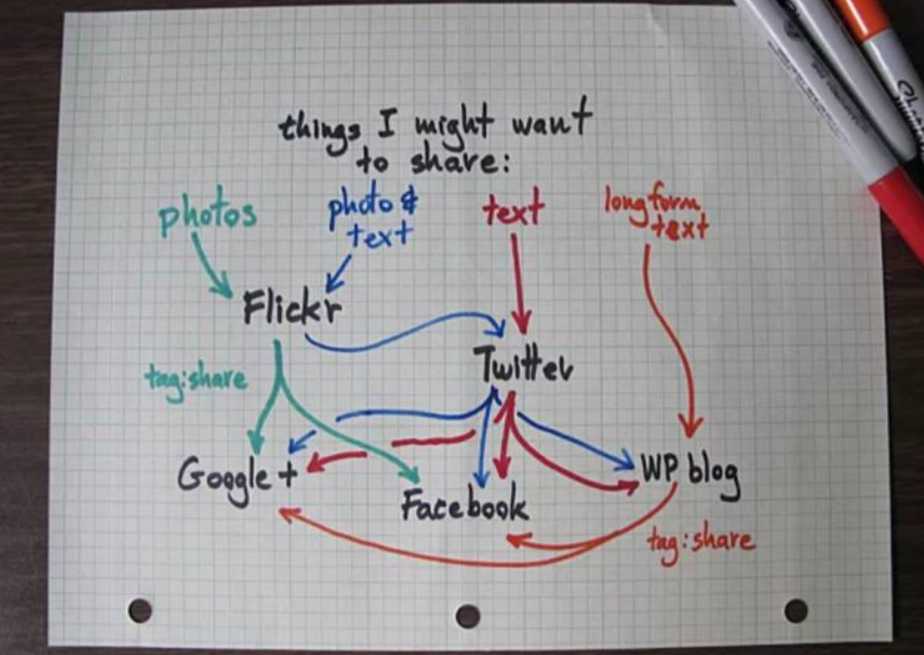 things I might want
to share:
photos
photo &
text
text
longform
text
Flickr
Twitter
tag:share
Google +
Facebook
WP blog
tag:share
Sharpie